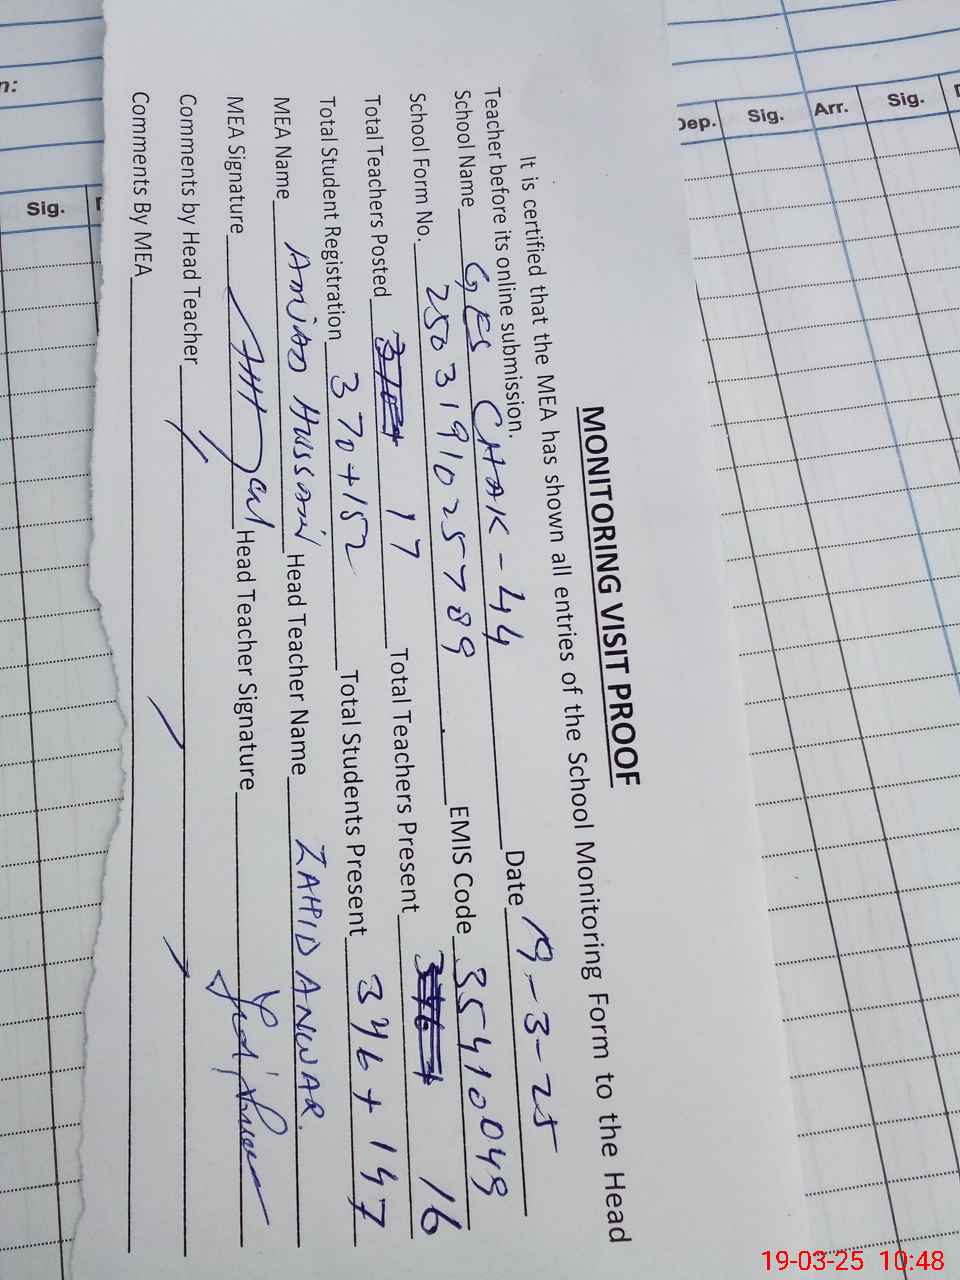 MONITORING VISIT PROOF
It is certified that the MEA has shown all entries of the School Monitoring Form to the Head
Teacher before its online submission.
School Name GES CHAK-44 Date 19-3-25
School Form No. 2503191025789 EMIS Code 35410049
Total Teachers Posted 17 Total Teachers Present 16
Total Student Registration 370+152 Total Students Present 346+147
MEA Name AMJAD HUSSAIN Head Teacher Name ZAHID ANWAR.
MEA Signature Head Teacher Signature
Comments by Head Teacher
Comments By MEA
Dep. Sig. Arr. Sig.
Sig.
n:
19-03-25 10:48